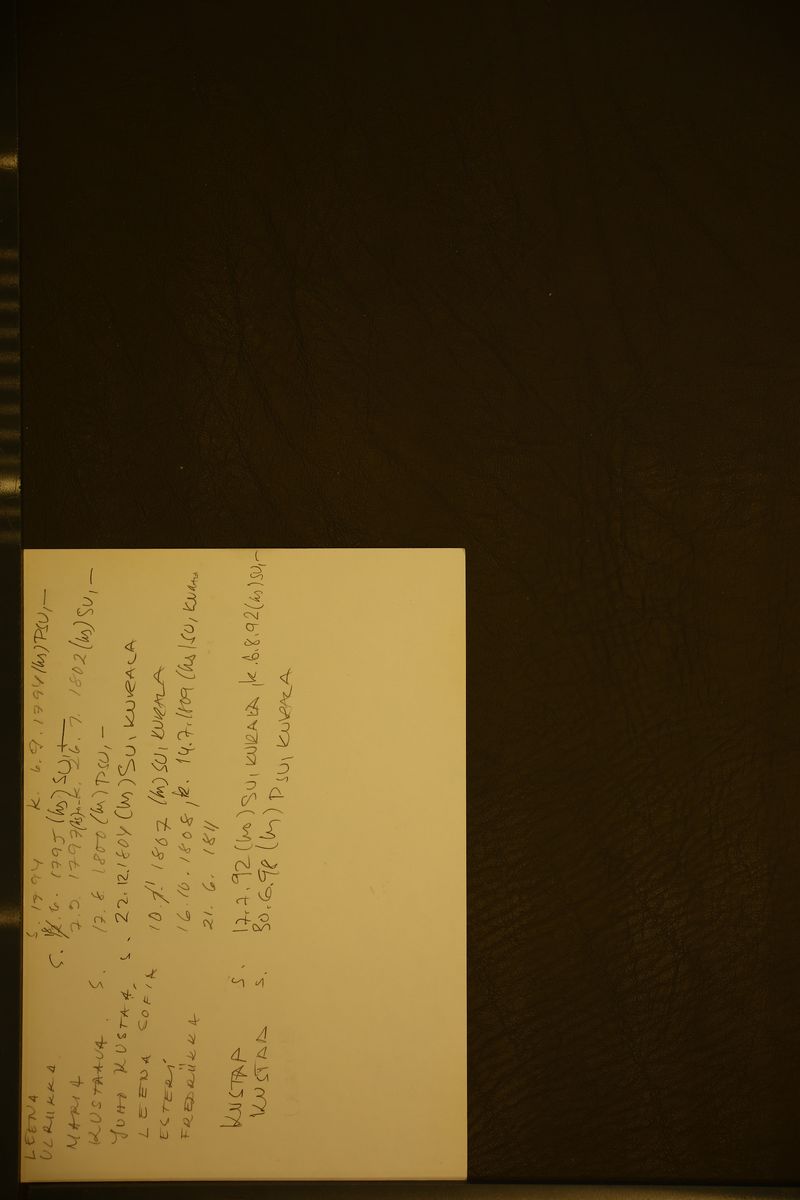 LEENA S. 1794 K. 6.9.1794 (hs) PSU, —
ULRIIKKA S. 6. 1795 (hs) SU, —
MARIA 7.9. 1797 (hs) K. 26.7. 1802 (hs) SU, —
KUSTAAVA S. 17.8 1800 (hs) PSU, —
JUHO KUSTAA, S. 22.12.1804 (hs) SU, KURALA
LEENA SOFIA 10. 1807 (hs) SU, KURALA
ESTERI 16.10.1808, K. 14.7.1809 (hs) SU, KURALA
FREDRIIKKA 21. 6. 1811
KUSTAA S. 17.7.92 (hs) SU, KURALA, K. 6.8.92 (hs) SU, —
KUSTAA S. 30.6.98 (hs) PSU, KURALA